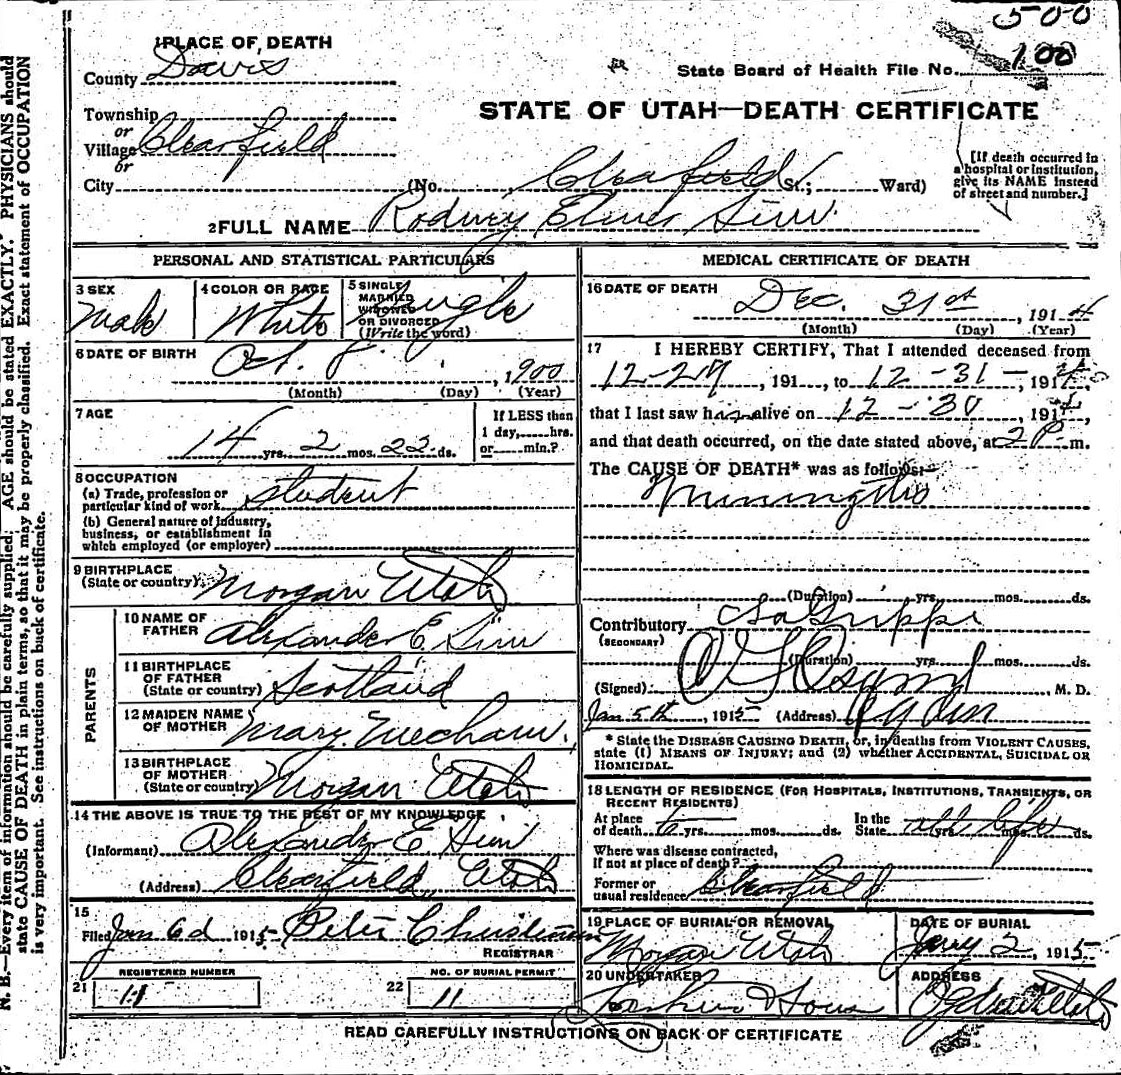 500
1 PLACE OF DEATH
County Davis
State Board of Health File No. 100
STATE OF UTAH—DEATH CERTIFICATE
Township
or
Village Clearfield
or
City (No. Clearfield St.; Ward)
[If death occurred in a hospital or institution, give its NAME instead of street and number.]
2 FULL NAME Rodney Elmer
PERSONAL AND STATISTICAL PARTICULARS
3 SEX
Male
4 COLOR OR RACE
White
5 SINGLE MARRIED WIDOWED OR DIVORCED (Write the word)
Single
6 DATE OF BIRTH
Oct. 8, 1900
(Month) (Day) (Year)
7 AGE
14 yrs. 2 mos. 22 ds.
If LESS than 1 day, hrs. or min.?
8 OCCUPATION
(a) Trade, profession or particular kind of work student
(b) General nature of industry, business, or establishment in which employed (or employer)
9 BIRTHPLACE (State or country) Morgan Utah
PARENTS
10 NAME OF FATHER Alexander E.
11 BIRTHPLACE OF FATHER (State or country) Scotland
12 MAIDEN NAME OF MOTHER Mary Mecham
13 BIRTHPLACE OF MOTHER (State or country) Morgan Utah
14 THE ABOVE IS TRUE TO THE BEST OF MY KNOWLEDGE
(Informant) Alexander E
(Address) Clearfield, Utah
15
Filed Jan 6d 1915 Peter Christensen
REGISTRAR
REGISTERED NUMBER
21 11
NO. OF BURIAL PERMIT
22 11
MEDICAL CERTIFICATE OF DEATH
16 DATE OF DEATH
Dec. 31st, 1914
(Month) (Day) (Year)
17 I HEREBY CERTIFY, That I attended deceased from
191 , to 12-31-, 1914,
that I last saw h alive on 12-30, 1914,
and that death occurred, on the date stated above, at 2 P m.
The CAUSE OF DEATH* was as follows:
(Duration) yrs. mos. ds.
Contributory La Grippe
(SECONDARY)
(Duration) yrs. mos. ds.
(Signed) M. D.
Jan 5th, 1915 (Address) Ogden
* State the DISEASE CAUSING DEATH, or, in deaths from VIOLENT CAUSES, state (1) MEANS OF INJURY; and (2) whether ACCIDENTAL, SUICIDAL OR HOMICIDAL.
18 LENGTH OF RESIDENCE (FOR HOSPITALS, INSTITUTIONS, TRANSIENTS, OR RECENT RESIDENTS)
At place of death 6 yrs. mos. ds. In the State all life yrs. mos. ds.
Where was disease contracted, if not at place of death?
Former or usual residence Clearfield
19 PLACE OF BURIAL OR REMOVAL
Morgan Utah
DATE OF BURIAL
Jany 2, 1915
20 UNDERTAKER
ADDRESS
READ CAREFULLY INSTRUCTIONS ON BACK OF CERTIFICATE
N. B.—Every item of information should be carefully supplied. AGE should be stated EXACTLY. PHYSICIANS should
state CAUSE OF DEATH in plain terms, so that it may be properly classified. Exact statement of OCCUPATION
is very important. See instructions on back of certificate.